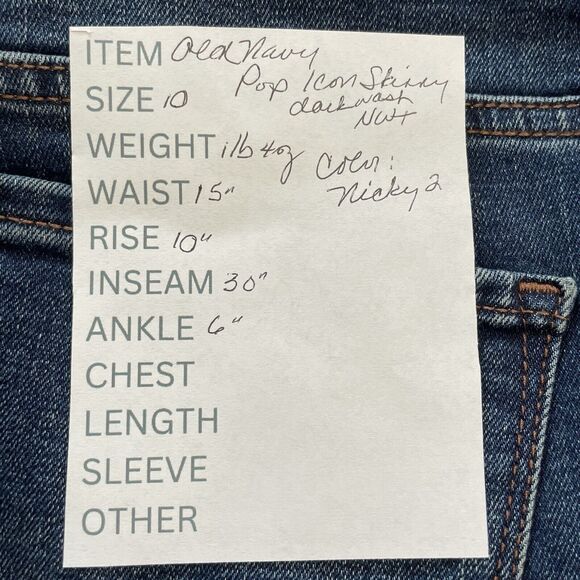 ITEM Old Navy
Pop Icon Skinny
dark wash
NWT
SIZE 10
WEIGHT 1 lb 4 oz
Color:
Nicky 2
WAIST 15"
RISE 10"
INSEAM 30"
ANKLE 6"
CHEST
LENGTH
SLEEVE
OTHER